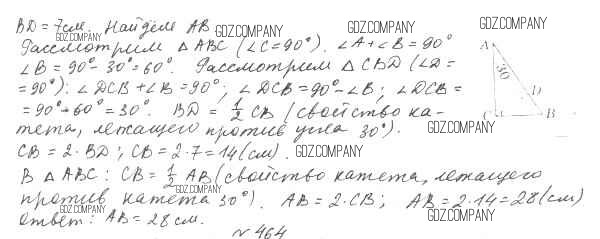 BD = 7см. Найдём AB
GDZ.COMPANY GDZ.COMPANY GDZ.COMPANY
Рассмотрим △ ABC (∠C=90°). ∠A+∠B=90°
∠B=90°-30°=60°. Рассмотрим △ CBD (∠D=
=90°): ∠DCB+∠B=90°; ∠DCB=90°-∠B; ∠DCB=
=90°-60°=30°. BD = 1/2 CB (свойство ка-
тета, лежащего против угла 30°).
GDZ.COMPANY
CB = 2·BD; CB = 2·7=14(см).
GDZ.COMPANY
В △ ABC: CB = 1/2 AB (свойство катета, лежащего
против катета 30°). AB = 2·CB; AB = 2·14=28(см)
GDZ.COMPANY
ответ: AB = 28 см.
GDZ.COMPANY GDZ.COMPANY
№ 464
A
30
D
C
B